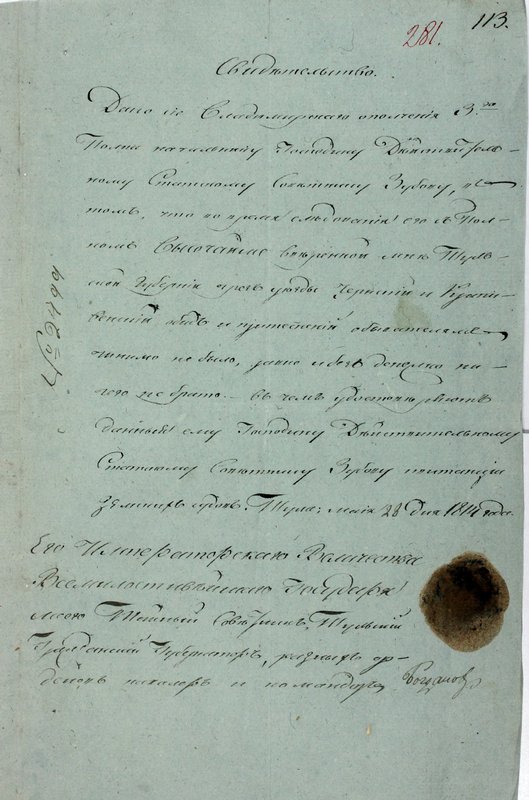 113.
281.
Свидѣтельство.
Дано сіе Владимирскаго ополченія 3го
Полка начальнику Господину Дѣйствитель-
ному Статскому Совѣтнику Зубову, въ
томъ, что во время слѣдованія его съ Пол-
комъ Высочайше ввѣренной мнѣ Туль-
ской Губерніи чрезъ уѣзды Чернскій и Крапи-
венскій, обидъ и притѣсненій обывателямъ
чинимо не было, равно и безъ денежно ни-
чего не брато. — въ чемъ удостовѣряютъ
данныя ему Господину Дѣйствительному
Статскому Совѣтнику Зубову квитанціи
Земскихъ судовъ. Тула; маія 28 дня 1814 года.
Его Императорскаго Величества
Всемилостивѣйшаго Государя
моего Тайный Совѣтникъ, Тульскій
Гражданскій Губернаторъ, разныхъ ор-
деновъ кавалеръ и командоръ Богдановъ